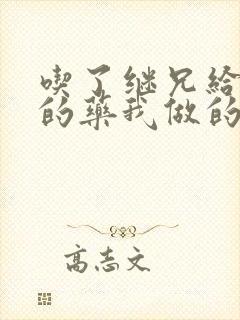 喫了继兄给
的藥我做的
高志文